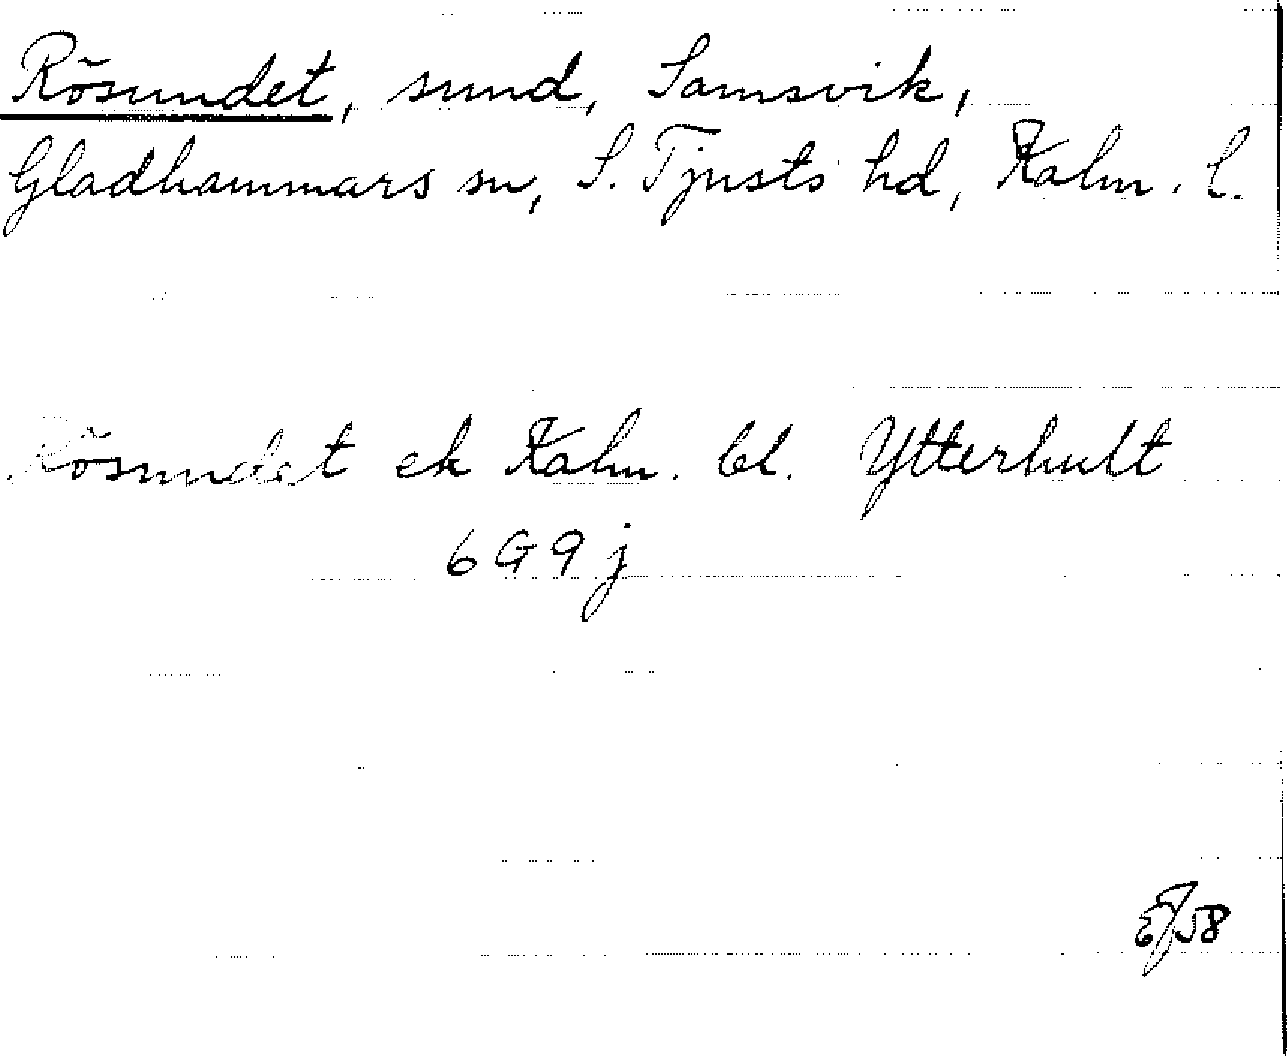 Rösundet, sund, Samsvik,
Gladhammars sn, S. Tjusts hd, Kalm. l.
Rösundet ek Kalm. bl. Ytterhult
6G9j